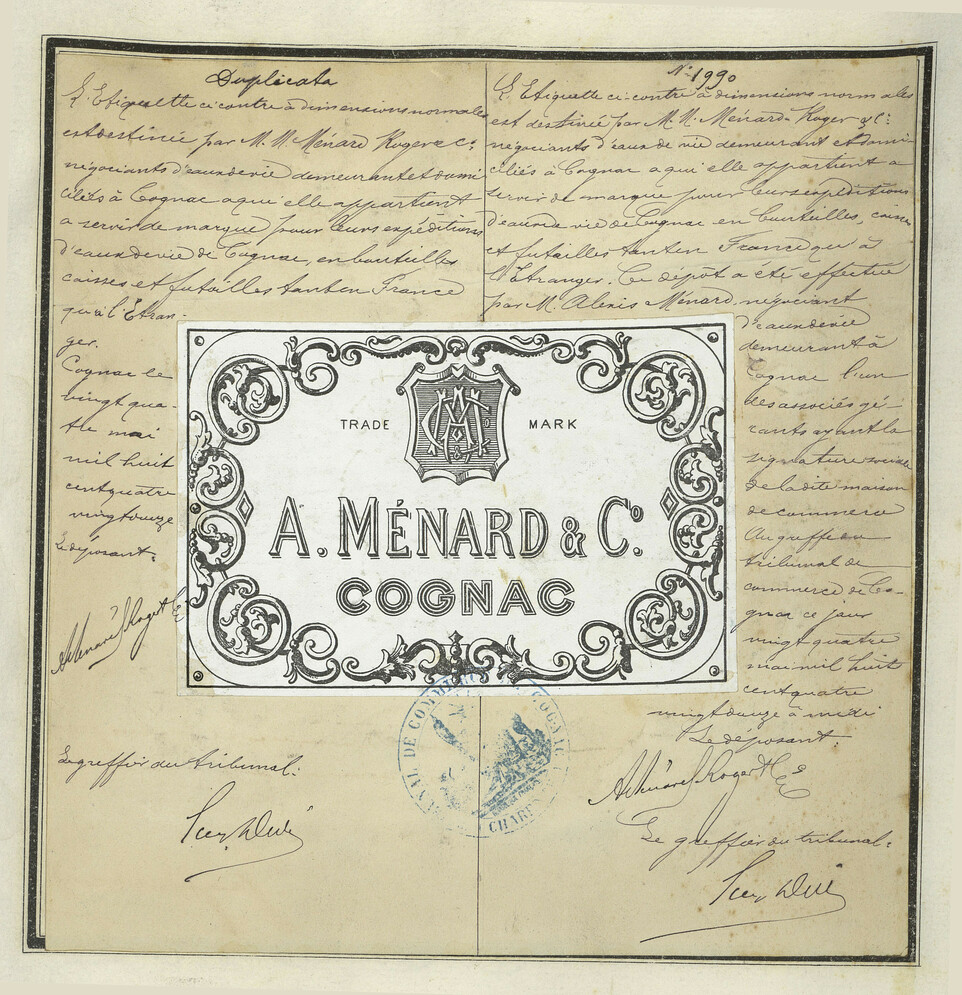 Duplicata
L'Etiquette ci-contre à dimensions normales
est destinée par M.M. Ménard Roger & Cie
négociants d'eaux de vie demeurant et domi
ciliés à Cognac a qui elle appartient
a servir de marque pour leurs expéditions
d'eaux de vie de Cognac, en bouteilles
caisses et futailles tant en France
qu'à l'Etran-
ger.
Cognac le
vingt qua-
tre mai
mil huit
cent quatre
vingt douze
Le déposant.
A Ménard Roger & Cie
Le greffier du tribunal:
No 1990
L'Etiquette ci-contre à dimensions normales
est destinée par M.M. Ménard-Roger & Cie
négociants d'eaux de vie demeurant et domi
ciliés à Cognac a qui elle appartient a
servir de marque pour leurs expéditions
d'eaux de vie de Cognac en bouteilles, caisses
et futailles tant en France qu'à
l'Etranger. Ce dépôt a été effectué
par M. Alexis Ménard négociant
d'eaux de vie
demeurant à
Cognac l'un
des associés gé-
rants ayant la
signature sociale
de la dite maison
de commerce
Au greffe du
tribunal de
commerce de Co-
gnac ce jour
vingt quatre
mai mil huit
cent quatre
vingt douze à midi
Le déposant
A Ménard Roger & Cie
Le greffier du tribunal:
TRADE MARK
A. MÉNARD & Co.
COGNAC
DE COMMERCE COGNAC